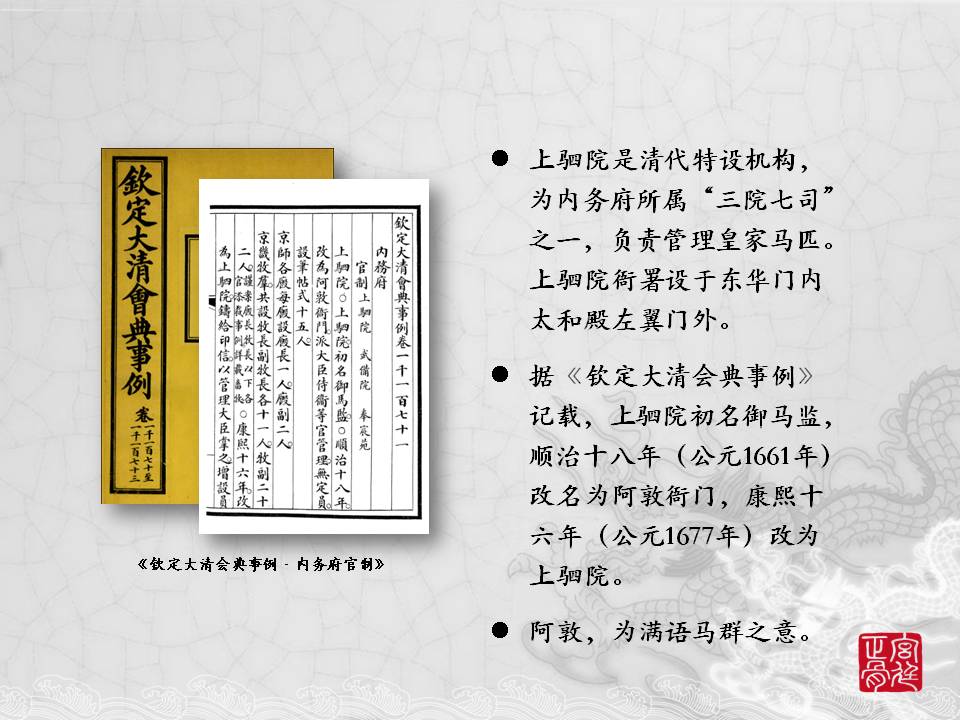 欽定大清會典事例
卷一千一百七十至
一千一百七十三
欽定大清會典事例卷一千一百七十一
內務府
官制 上駟院 武備院 奉宸苑
上駟院○上駟院初名御馬監○順治十八年
改為阿敦衙門派大臣侍衛等官管理無定員
設筆帖式十五人
京師各廠每廠設廠長一人廠副二人
京畿牧羣共設牧長副牧長各十一人牧副二十
二人○康熙十六年改
為上駟院鑄給印信以管理大臣掌之增設員
《钦定大清会典事例-内务府官制》
● 上驷院是清代特设机构，
为内务府所属“三院七司”
之一，负责管理皇家马匹。
上驷院衙署设于东华门内
太和殿左翼门外。
● 据《钦定大清会典事例》
记载，上驷院初名御马监，
顺治十八年（公元1661年）
改名为阿敦衙门，康熙十
六年（公元1677年）改为
上驷院。
● 阿敦，为满语马群之意。
宫廷
正骨